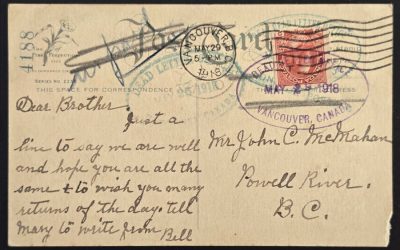 4188
Post Card
VANCOUVER, B.C.
MAY 29
5 PM
1918
DEAD LETTER
VANCOUVER, CANADA
MAY 1918
THIS SPACE FOR CORRESPONDENCE
ADDRESS
Dear Brother
Just a
line to say we are well
and hope you are all the
same & to wish you many
returns of the day. tell
Mary to write from Bell
Mr John C. McMahan
Powell River.
B.C.